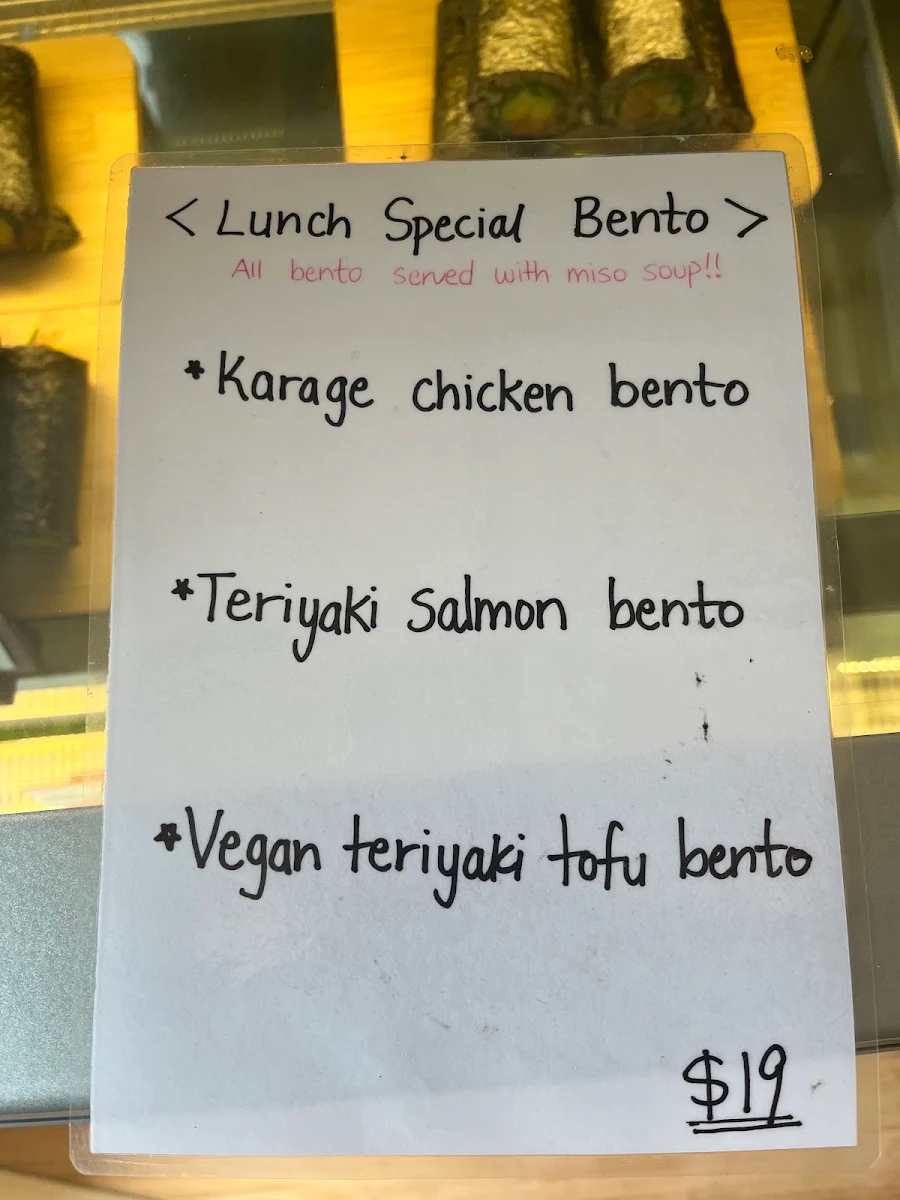 < Lunch Special Bento >
All bento served with miso soup!!
*Karage chicken bento
*Teriyaki salmon bento
*Vegan teriyaki tofu bento
$19